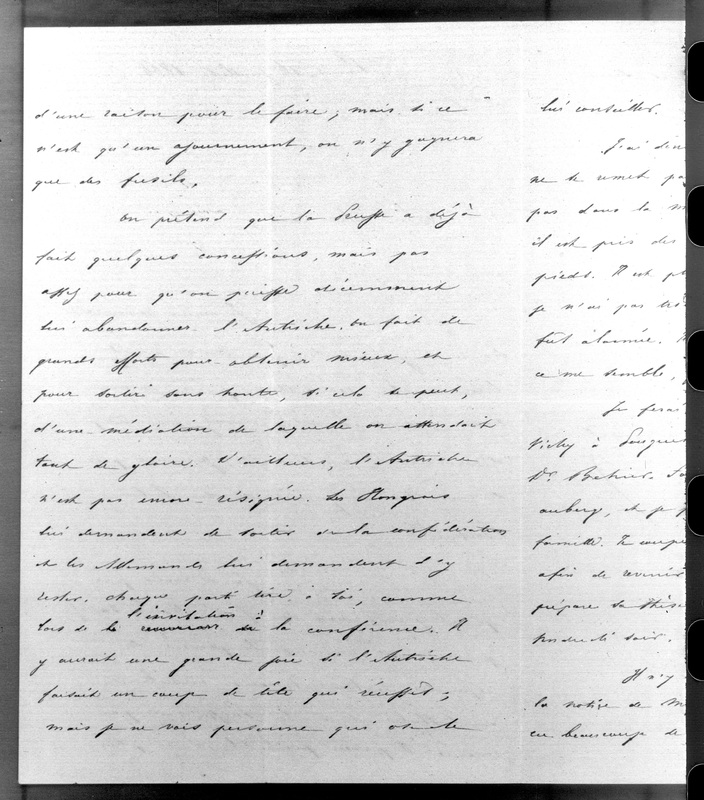 d'une raison pour le faire; mais si ce
n'est qu'un ajournement, on n'y gagnera
que des fusils.
On prétend que la Prusse a déjà
fait quelques concessions, mais pas
assez pour qu'on puisse décemment
lui abandonner l'Autriche. On fait de
grands efforts pour obtenir mieux, et
pour sortir sans honte, si cela se peut,
d'une médiation de laquelle on attendait
tant de gloire. D'ailleurs, l'Autriche
n'est pas encore résignée. Les Hongrois
lui demandent de sortir de la confédération
et les Allemands lui demandent d'y
rester. Chaque parti tire à soi, comme
lors de l'invitation à la conférence. Il
y aurait une grande joie si l'Autriche
faisait un coup de tête qui réussît;
mais je ne vois personne qui ose le
lui conseiller.
J'ai
ne se remet
pas dans la
il est pris des
pieds. Il est
je n'ai pas
fut alarmée.
ce me semble,
Je ferai
Vichy à Pougues
Dr.
aubery, et je
famille. Je
afin de revenir
prépare sa thèse
soir.
Il n'y
la notice de
eu beaucoup de